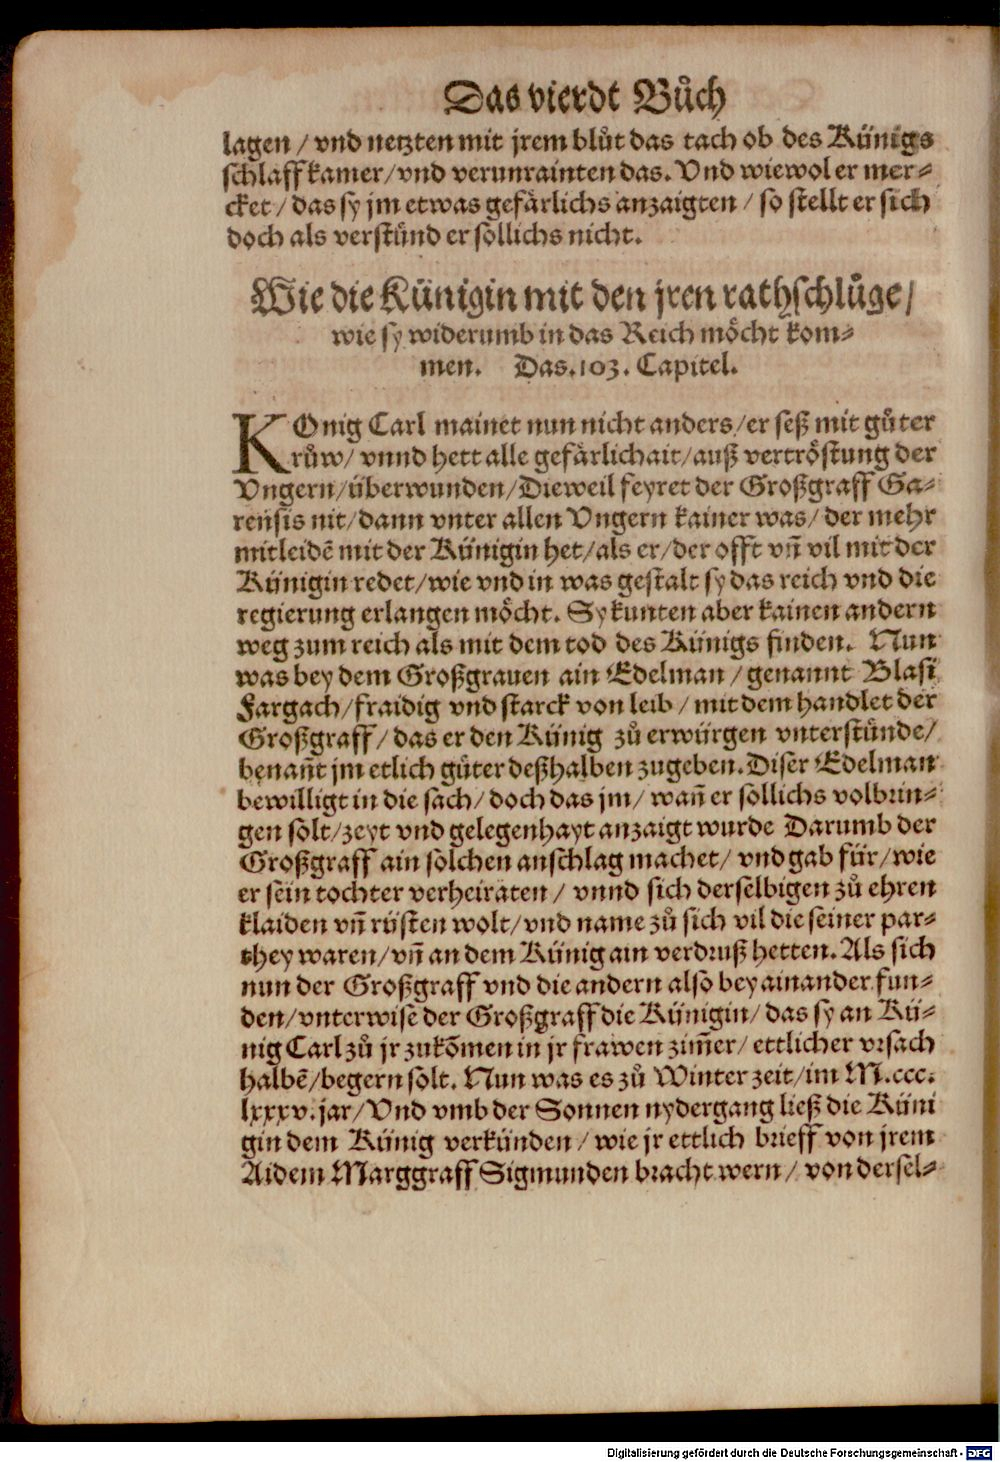 Das vierdt Bůch
lagen / vnd netzten mit jrem blůt das tach ob des Künigs
schlaffkamer / vnd verunrainten das. Vnd wiewol er mer-
cket / das sy jm etwas gefärlichs anzaigten / so stellt er sich
doch als verstünd er sollichs nicht.
Wie die Künigin mit den jren rathschlůge /
wie sy widerumb in das Reich möcht kom-
men. Das .103. Capitel.
KOnig Carl mainet nun nicht anders / er seß mit gůter
růw / vnnd hett alle gefärlichait / auß vertröstung der
Vngern / überwunden / Dieweil feyret der Großgraff Ga-
rensis nit / dann vnter allen Vngern kainer was / der mehr
mitleidē mit der Künigin het / als er / der offt vñ vil mit der
Künigin redet / wie vnd in was gestalt sy das reich vnd die
regierung erlangen möcht. Sy kunten aber kainen andern
weg zum reich als mit dem tod des Künigs finden. Nun
was bey dem Großgrauen ain Edelman / genannt Blasi
Fargach / fraidig vnd starck von leib / mit dem handlet der
Großgraff / das er den Künig zů erwürgen vnterstünde /
benañt jm etlich güter deßhalben zugeben. Diser Edelman
bewilligt in die sach / doch das jm / wañ er sollichs volbrin-
gen solt / zeyt vnd gelegenhayt anzaigt wurde Darumb der
Großgraff ain solchen anschlag machet / vnd gab für / wie
er sein tochter verheiraten / vnnd sich derselbigen zů ehren
klaiden vñ rüsten wolt / vnd name zů sich vil die seiner par-
they waren / vñ an dem Künig ain verdruß hetten. Als sich
nun der Großgraff vnd die andern also bey ainander fun-
den / vnterwise der Großgraff die Künigin / das sy an Kü-
nig Carl zů jr zukōmen in jr frawen zim̃er / ettlicher vrsach
halbē / begern solt. Nun was es zů Winter zeit / im M.ccc.
lxxxv. jar / Vnd vmb der Sonnen nydergang ließ die Küni
gin dem Künig verkünden / wie jr ettlich brieff von jrem
Aidem Marggraff Sigmunden bracht wern / von dersel-
Digitalisierung gefördert durch die Deutsche Forschungsgemeinschaft - DFG